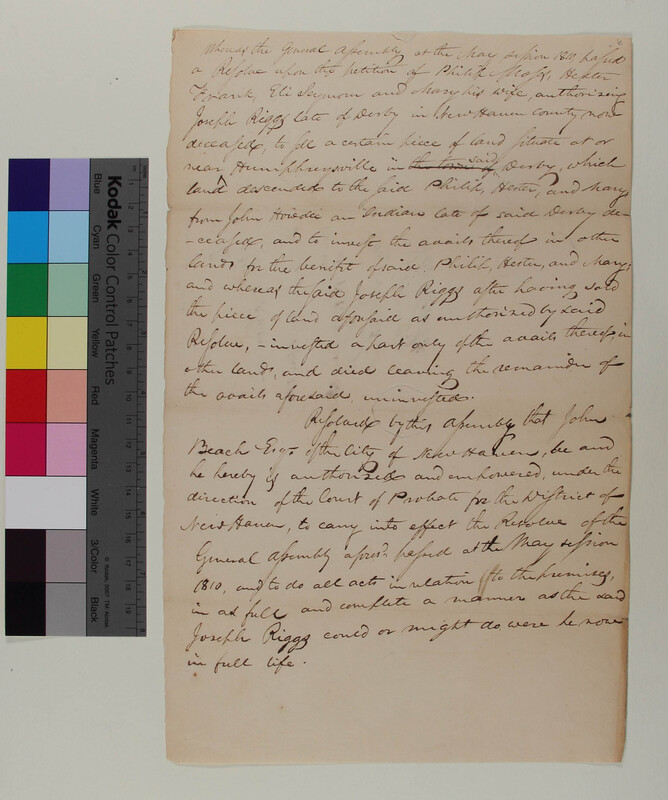 Whereas the General Assembly, at the May session 1810, passed
a Resolve upon the petition of Philip Moses, Hester
Frank, Eli Seymour and Mary his wife, authorising
Joseph Riggs late of Derby in New Haven County, now
deceased, to sell a certain piece of land situate at or
near Humphreysville in the town of said Derby, which
land descended to the said Philip, Hester, and Mary
from John an Indian late of said Derby de-
-ceased, and to invest the avails thereof in other
lands for the benifit of said Philip, Hester, and Mary;
and whereas the said Joseph Riggs after having sold
the piece of land aforesaid as authorized by said
Resolve, - invested a part only of the avails thereof in
other lands, and died leaving the remainder of
the avails aforesaid, uninvested.
Resolved by this Assembly that John
Beach Esqr of the City of New Haven, be and
he hereby is authorized and empowered, under the
direction of the Court of Probate for the District of
New Haven, to carry into effect the Resolve of the
General Assembly aforsd. passed at the May session
1810, and to do all acts in relation to the premises,
in as full and complete a manner as the said
Joseph Riggs could or might do, were he now
in full life.
Kodak Color Control Patches
Blue
Cyan
Green
Yellow
Red
Magenta
White
3/Color
Black
© Kodak, 2007 TM: Kodak